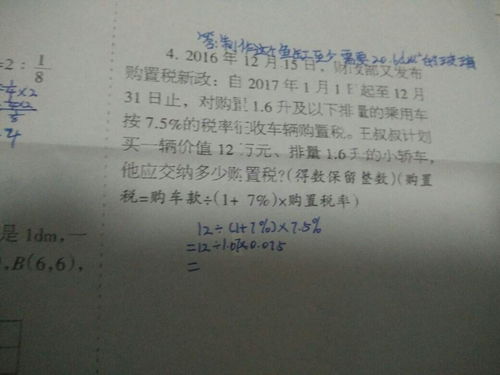 答:制作这个鱼缸至少需要20.1dm²的玻璃
=2:1/8
×2
4. 2016年12月15日,财政部又发布
购置税新政:自2017年1月1日起至12月
31日止,对购置1.6升及以下排量的乘用车
按7.5%的税率征收车辆购置税。王叔叔计划
买一辆价值12万元、排量1.6升的小轿车,
他应交纳多少购置税?(得数保留整数)(购置
税=购车款÷(1+7%)×购置税率)
是1dm,一
,B(6,6),
12÷(1+7%)×7.5%
=12÷1.07×0.075
=